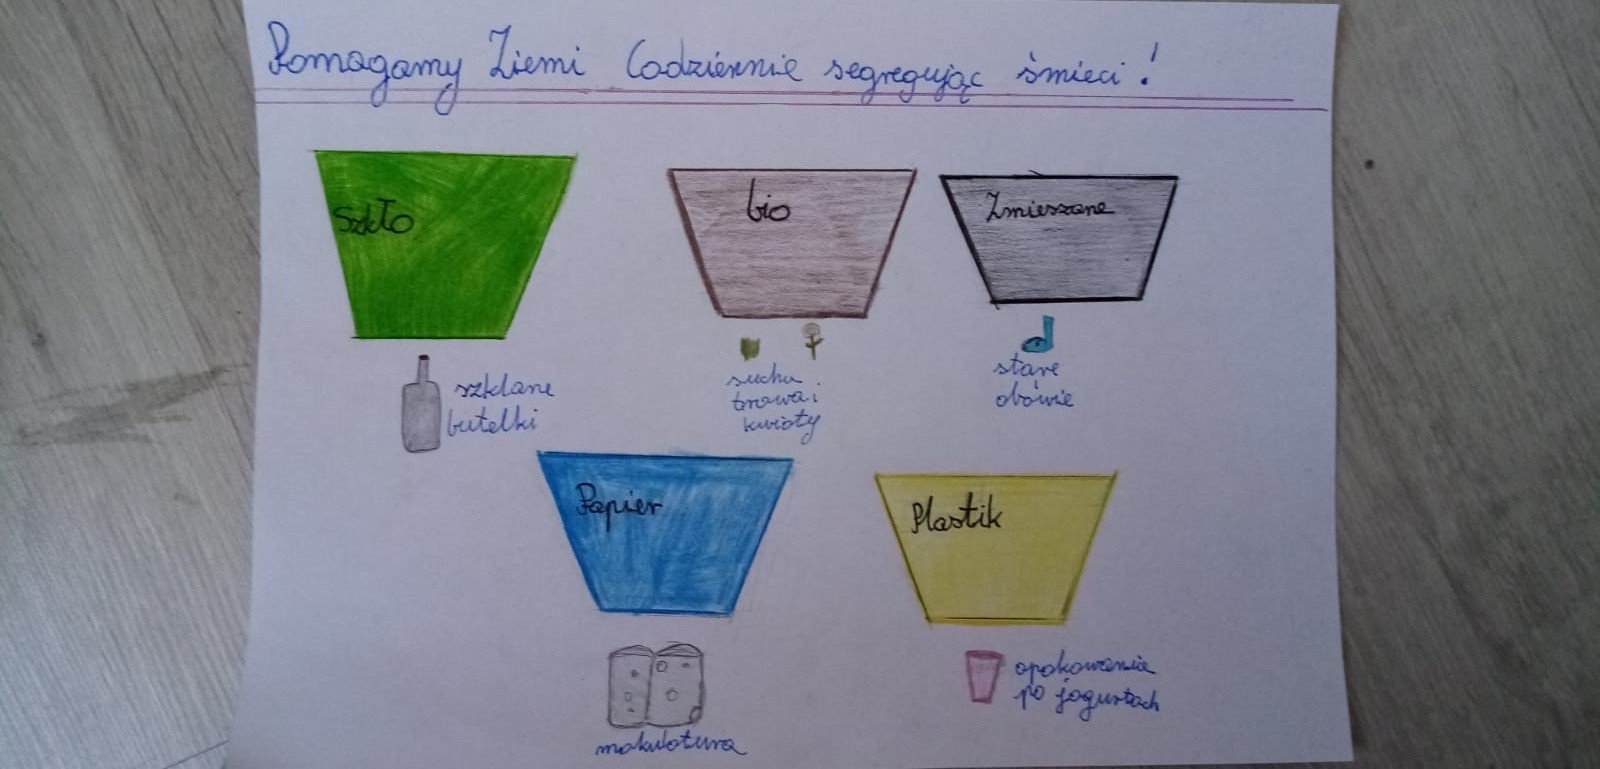 Pomagamy Ziemi Codziennie segregując śmieci!
Szkło
bio
Zmieszane
szklane
butelki
sucha
trawa i
kwiaty
stare
obówie
Papier
Plastik
makulatura
opakowania
po jogurtach